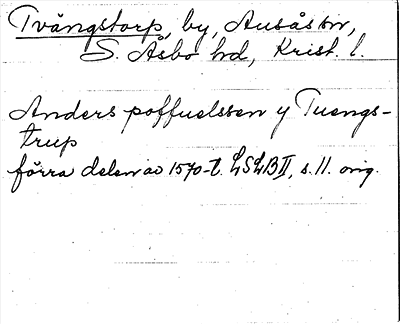 Tvångstorp, by, Ausås sn,
S. Åsbo hd, Krist. l.
Anders poffuelssen y Tuengs-
trup
förra delen av 1570-t. LSLB II, s. 11. orig.